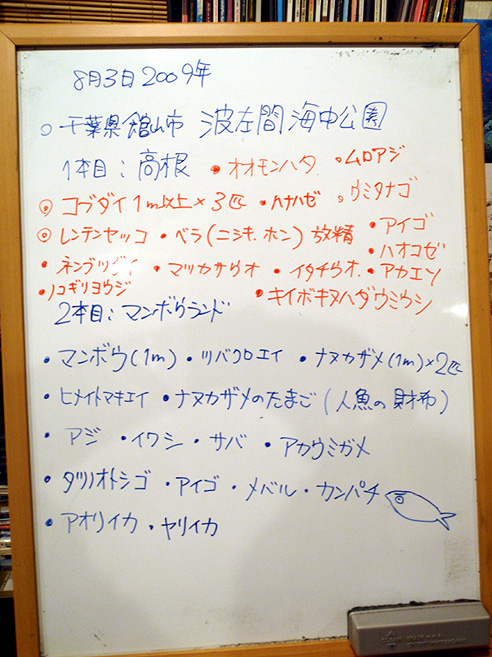 8月3日2009年
○千葉県館山市 波左間海中公園
1本目：高根 ・オオモンハタ ・ムロアジ
◎コブダイ1m以上×3匹 ・ハナハゼ ・ウミタナゴ
◎レンテンヤッコ ・ベラ(ニシキ、ホン)放精 ・アイゴ
・ハオコゼ
・ネンブツダイ ・マツカサウオ ・イタチウオ ・アカエソ
・ノコギリヨウジ ・キイボキヌハダウミウシ
2本目：マンボウランド
・マンボウ(1m) ・ツバクロエイ ・ナヌカザメ(1m)×2匹
・ヒメイトマキエイ ・ナヌカザメのたまご(人魚の財布)
・アジ ・イワシ ・サバ ・アカウミガメ
・タツノオトシゴ ・アイゴ ・メバル ・カンパチ
・アオリイカ ・ヤリイカ